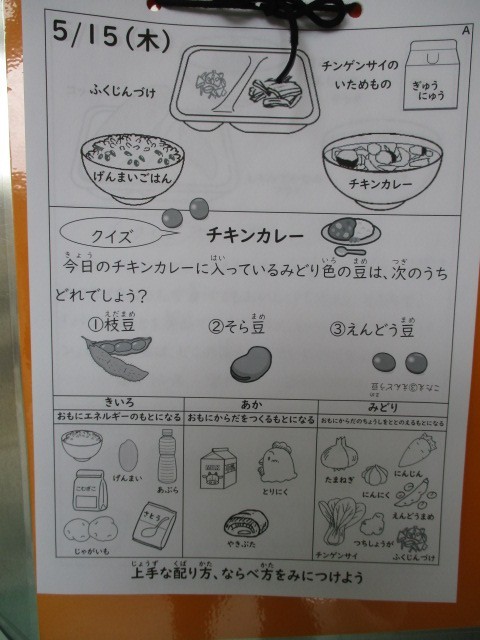 5/15(木)
A
ふくじんづけ
チンゲンサイの
いためもの
ぎゅう
にゅう
げんまいごはん
チキンカレー
クイズ
チキンカレー
今日のチキンカレーに入っているみどり色の豆は、次のうち
どれでしょう?
①枝豆 ②そら豆 ③えんどう豆
こたえ③えんどう豆
きいろ あか みどり
おもにエネルギーのもとになる おもにからだをつくるもとになる おもにからだのちょうしをととのえるもとになる
げんまい
あぶら
こむぎこ
さとう
じゃがいも
とりにく
やきぶた
たまねぎ
にんにく
にんじん
えんどうまめ
チンゲンサイ
つちしょうが
ふくじんづけ
上手な配り方、ならべ方をみにつけよう